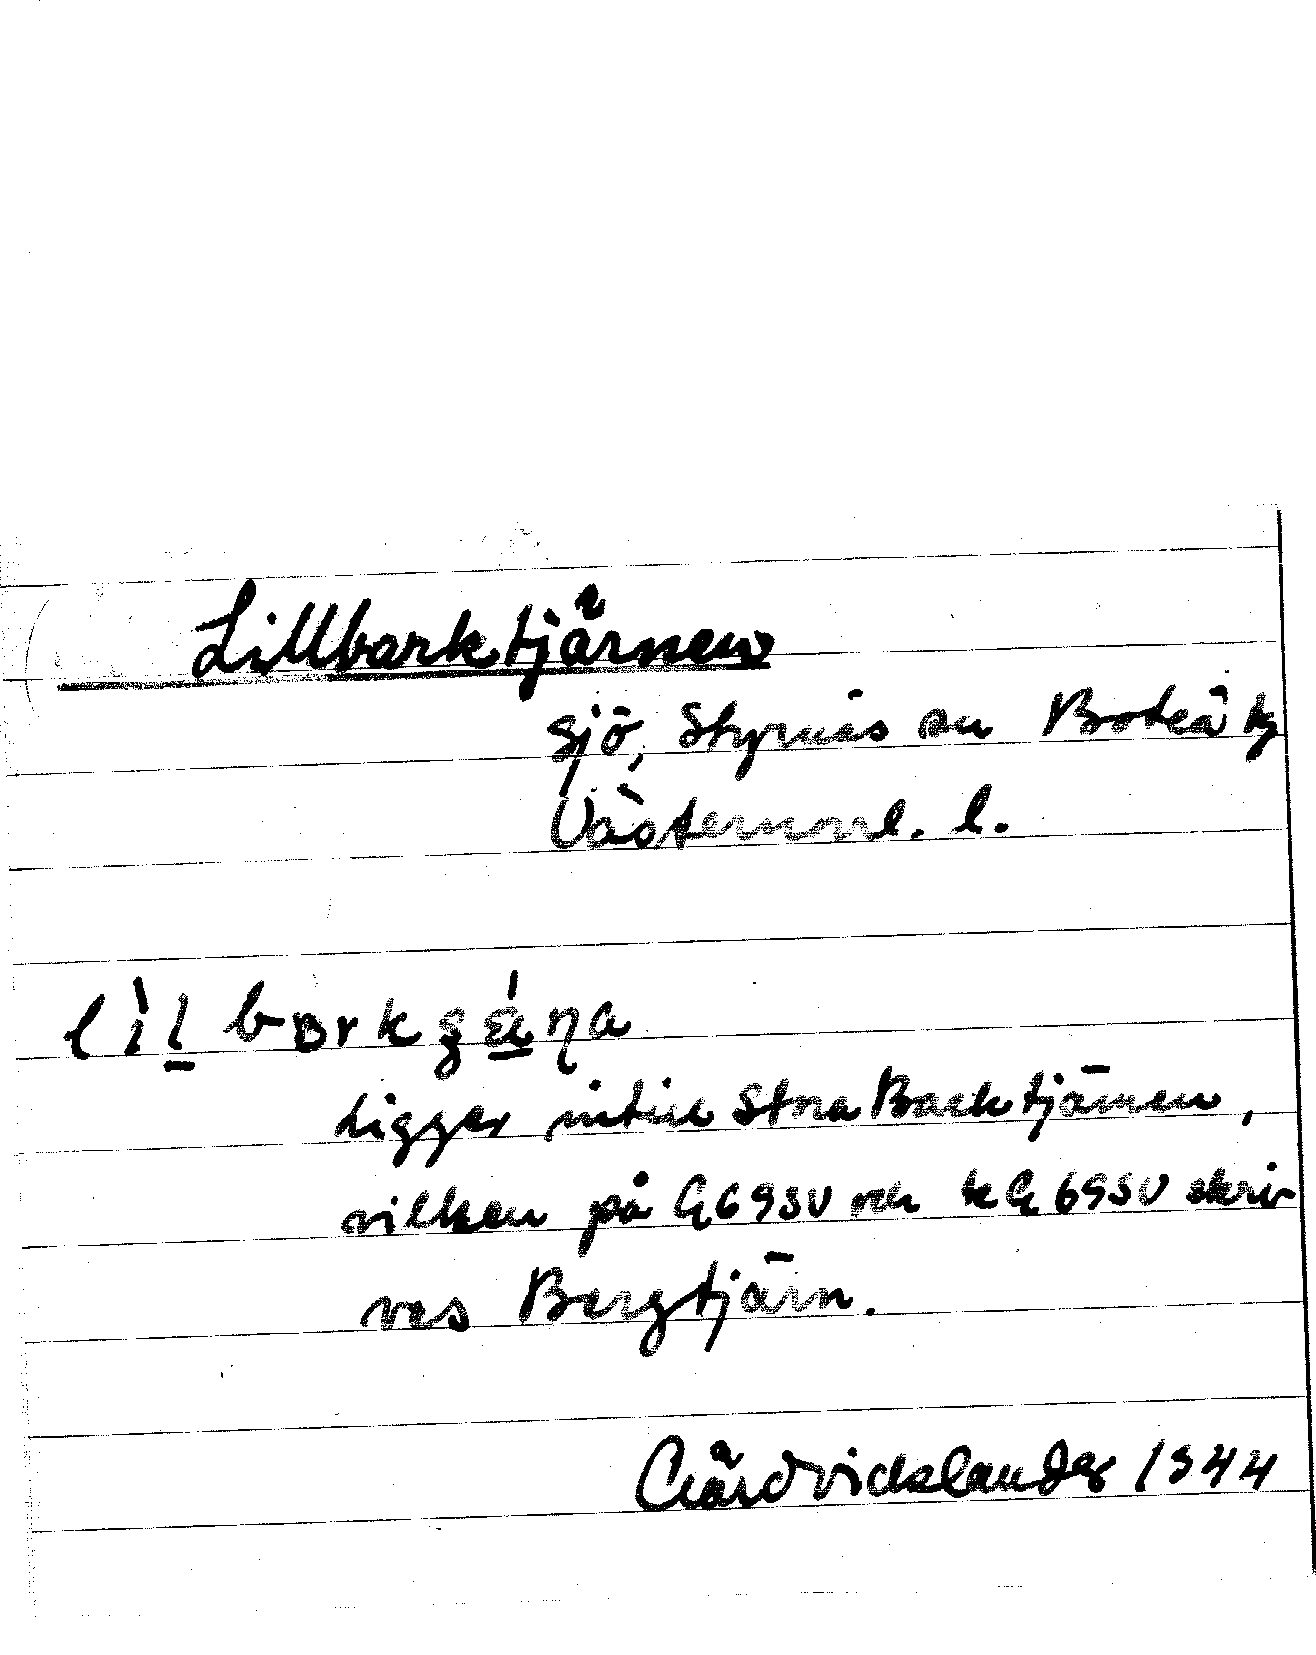 Lillbarktjärnen
sjö, Styrnäs sn Boteå tg
Västernorrl. l.
ligger intill Stora Barktjärnen,
vilken på G69SV och kG69SV skri-
ves Bergtjärn.
Gärdvidslander 1944